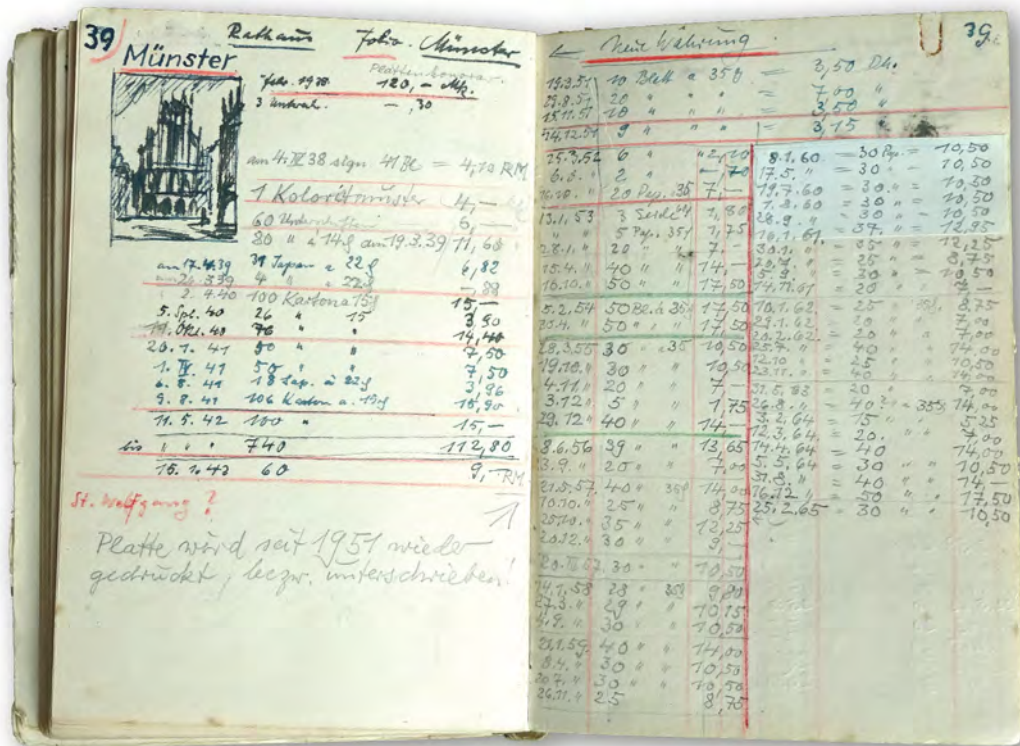 39
Rathaus Folio. Münster
Münster
Plattenhonorar
Febr. 1938 120,- Mk.
-,30
am 4. IV 38 sign 41 Bl = 4,10 RM
1 Koloritmuster 4,-
60 6,-
80 " à 14 am 19.3.39 11,60
am 17.4.39 31 Japan a 22 6,82
4 " 22 -,88
2. 4.40 100 Karton a 15 15,-
5. Spt. 40 26 " 15 3,90
Okt. 40 76 " " 14,40
20. 1. 41 50 " " 7,50
1. IV. 41 50 " " 7,50
6. 8. 41 18 Jap. à 22 3,96
9. 8. 41 106 Karton a. 15 15,90
11. 5. 42 100 " 15,-
bis " " " 740 112,80
15. 1. 43 60 9,- RM
St. Wolfgang ?
Platte wird seit 1951 wieder
gedruckt, bezw. unterschrieben!
39
← Neue Währung.
19.3.51 10 Blatt a 35 = 3,50 DM.
29.8.51 20 " " " = 7,00 "
15.11.51 10 " " " = 3,50 "
14.12.51 9 " " " = 3,15 "
25.3.52 6 " " 2,10
6.8. " 2 " -,70
20 Pap. 35 7,-
13.1. 53 3 Seide 1,80
" " 5 Pap. 35 1,75
28.1. " 20 " " 7,-
15.4. " 40 " " 14,-
16.10. " 50 " " 17,50
5.2.54 50 Bl. à 35 17,50
50 " " 17,50
28.3.55 30 " " 35 10,50
19.10. " 30 " 10,50
4.11. " 20 " " 7,-
3.12 " 5 " " 1,75
29.12 " 40 " " 14,-
8.6.56 39 " " 13,65
3.9. " 20 " " 7,00
21.5.57 40 " 35 14,00
10.10. " 25 " 8,75
25.10. " 35 " 12,25
20.12. " 30 " 9,-
30 " " 10,50
14.1.58 28 " 35 9,80
27.3. " 29 " 10,15
4.9. " 30 " 10,50
21.1.59. 40 " " 14,00
8.4. " 30 " " 10,50
20.7. " 30 " " 10,50
26.11. " 25 8,75
8.1.60 = 30 Pap. = 10,50
17.5. " = 30 " = 10,50
19.7.60 = 30 " = 10,50
1.8.60 = 30 " = 10,50
28.9. " = 30 " = 10,50
16.1.61. = 37. " = 12,95
30.1. " = 35 " = 12,25
20.7. " = 25 " = 8,75
5.9. " = 30 " = 10,50
14.11.61 = 20 " = 7,-
10.1.62. = 25 " 35 8,75
29.1.62 = 20 " 7,00
20.2.62. = 20 " 7,00
25.7. " = 40 " " 14,00
12.10 = 25 " 8,75
23.11. " = 40 " 14,00
31.5.63 = 20 " 7,00
26.8. " = 40 " a 35 14,00
3.2.64 = 15 " 5,25
12.3.64. = 20. " 7,00
14.4.64 = 40 " 14,00
5.5.64 = 30 " " 10,50
31.8. " = 40 " " 14,-
16.12 " = 50 " " 17,50
25.2.65 = 30 " " 10,50